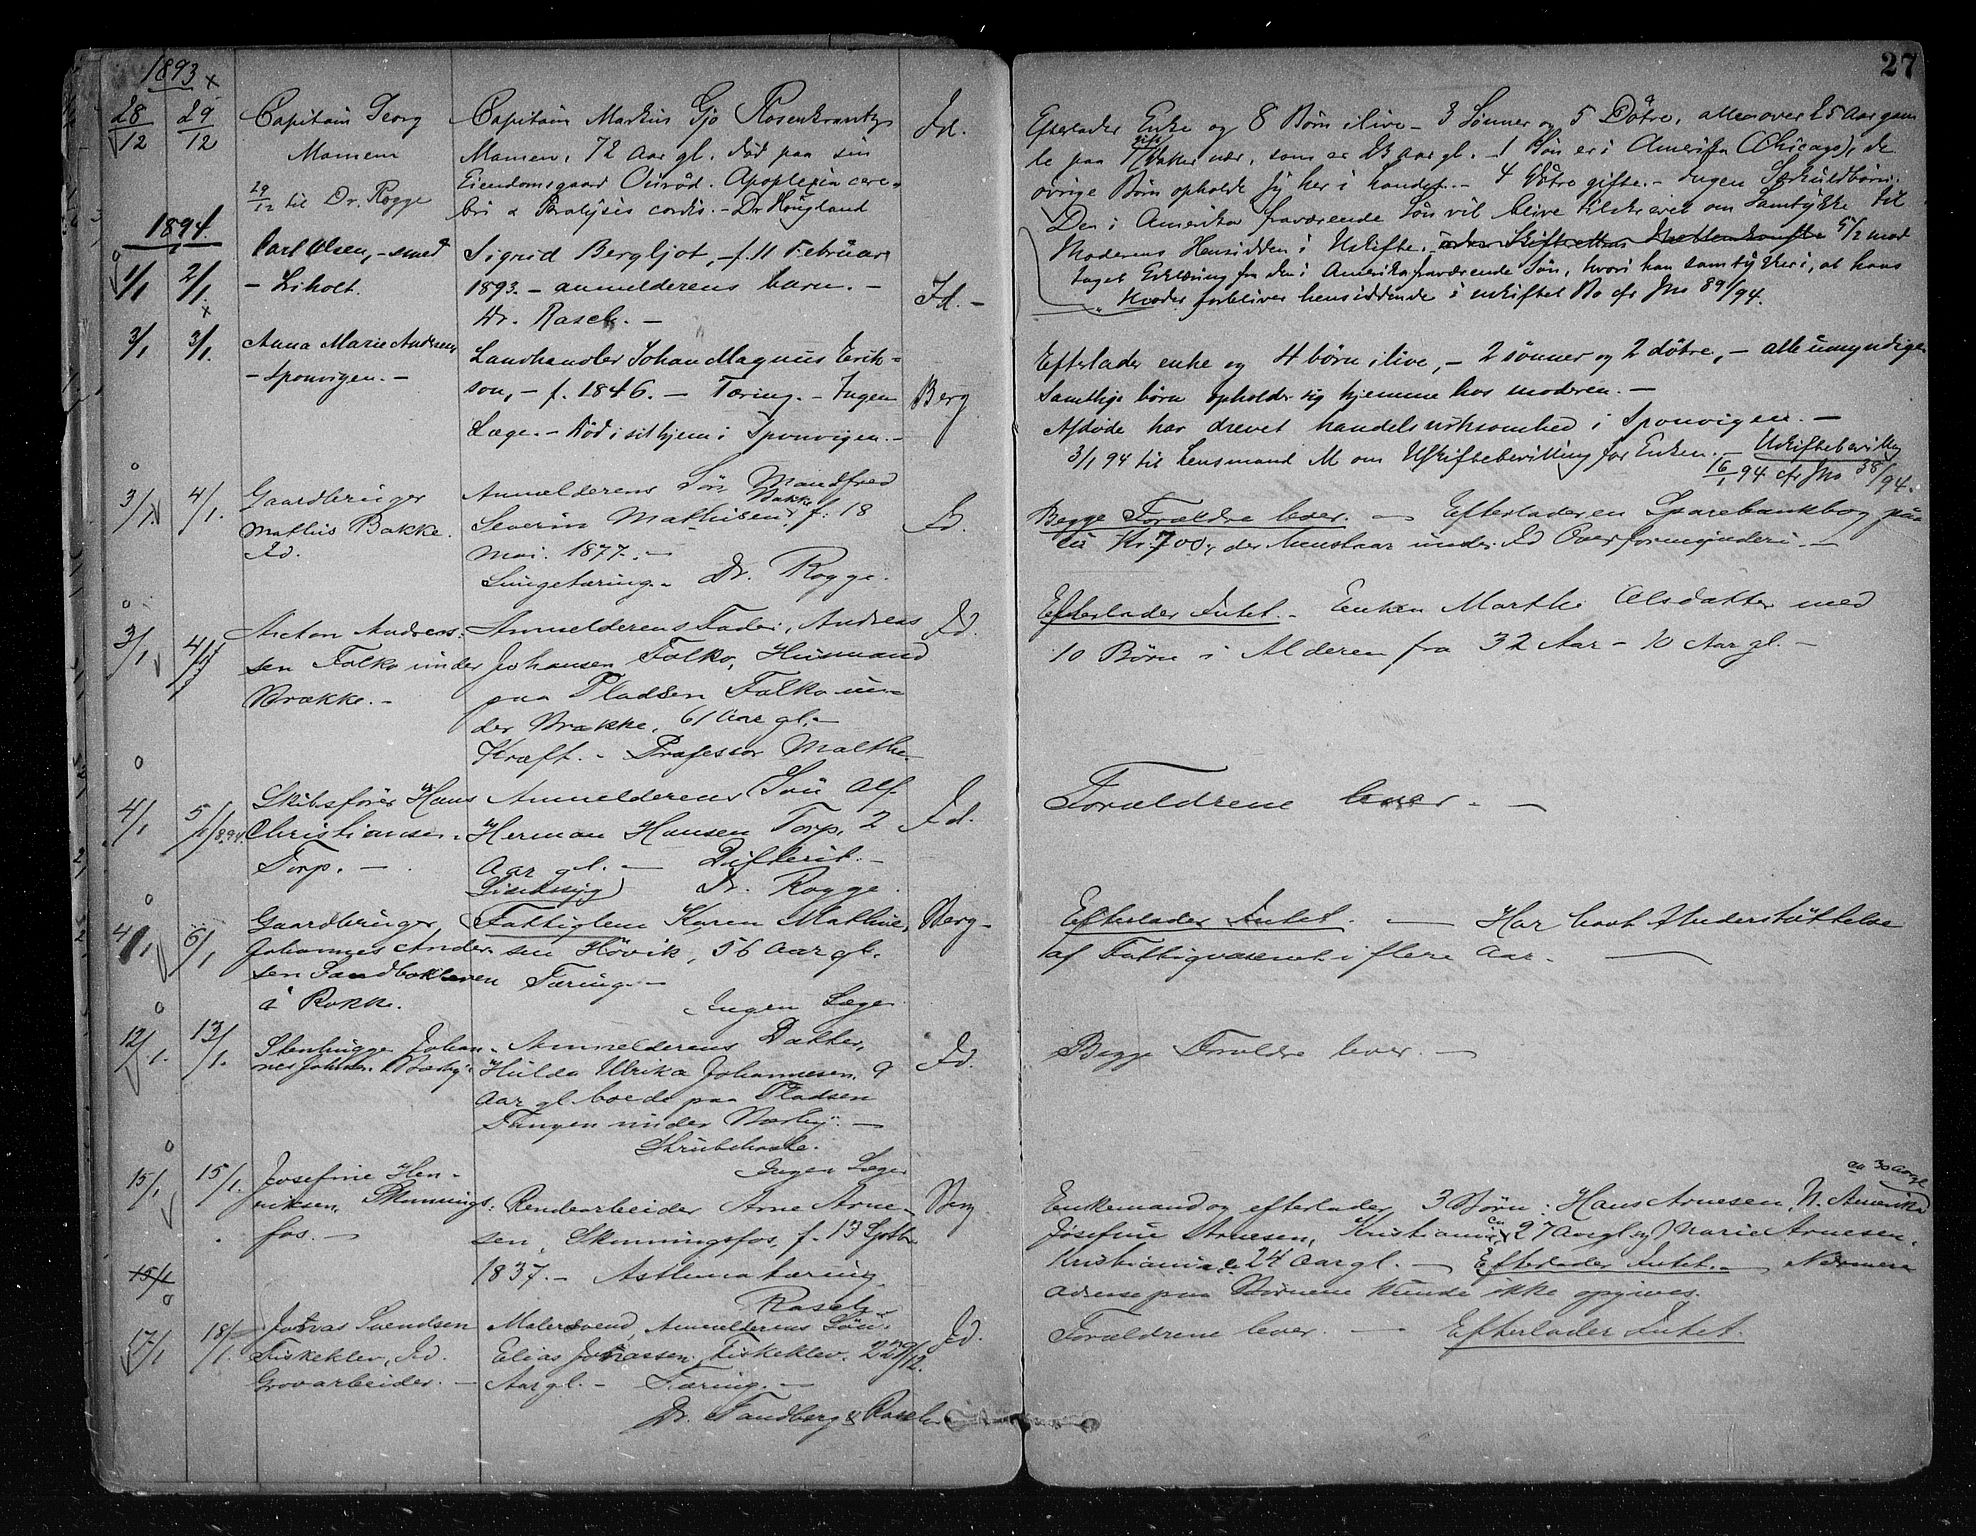 27
1893
28/12 29/12 Capitain Georg Capitain Markus Gjø Rosenkrantz Id.
Mamen Mamen, 72 Aar gl. død paa sin
29/12 til Dr. Rogge Eiendomsgaard Apoplexia cere-
bri & Paralysis cordis. - Dr. Hougland
Efterlader Enke og 8 Børn ilive - 3 Sønner og 5 Døtre, alle over 25 Aar gam
le paa 1 Datter nær, som er 23 aar gl. - 1 Søn er i Amerika (Chicago), de
øvrige Børn opholde sig her i Landet. - 4 Døtre gifte. - Ingen Særkuldbørn.
Den i Amerika fraværende Søn vil blive tilskrevet om Samtykke til
Moderens Hensidden i Uskifte. 5/2 mod
taget Erklæring fra den i Amerika fraværende Søn, hvori han samtykker i, at hans
Moder forbliver hensiddende i uskiftet Bo cfr Jno 89/94.
1894.
1/1 2/1 Carl Olsen, - smed Sigrid Bergljot, - f. 11 Februar
- Liholt. 1893. - anmelderens barn. - Id. -
Dr. Rasch. -
3/1 3/1 Anna Marie Andersen Landhandler Johan Magnus Erik-
- Sponvigen. - son, - f. 1846. - Tæring. - Ingen Berg
Læge. - Død i sit hjem i Sponvigen. -
Efterlader enke og 4 børn ilive, - 2 sønner og 2 døtre, - alle umyndige
Samtlige børn opholder sig hjemme hos moderen. -
Afdøde har drevet handelsvirksomhed i Sponvigen. -
3/1 94 til Lensmand M om Uskiftebevilling for Enken. - Uskiftebevilling
16/1 94 cfr Jno 38/94.
3/1 4/1 Gaardbruger Anmelderens Søn Mandfred
Mathis Bakke. Severin Mathisen Bakke, f. 18 Id.
Id. Mai. 1877. -
Lungetæring. - Dr. Rogge.
Begge Forældre lever. - Efterladeren Sparebankbog paa
Kr. 700, der henstaar under Id Overformynderi. -
3/1 4/1 Anton Andreas- Anmelderens Fader, Andreas Id.
sen Falko under Johansen Falko, Husmand
Brække. - paa Pladsen Falko un-
der Brække, 61 Aar gl. -
Kræft. - Professor Malthe
Efterlader Intet. - Enken Marthe Olsdatter med
10 Børn i Alderen fra 32 Aar - 10 Aar gl. -
4/1 5/1 1894. Skibsfører Hans Anmelderens Søn Alf
Christiansen Herman Hansen Torp, 2 Id.
Torp. - Aar gl. - Difterit. -
Dr. Rogge.
Forældrene lever. -
4/1 6/1 Gaardbruger Fattiglem Karen Mathie- Berg -
Johannes Ander- sen Høvik, 56 Aar gl.
sen Sandbakken Tæring. -
i Rokke. Ingen Læge
Efterlader Intet. - Har havt Understøttelse
af Fattigvæsenet i flere Aar. -
12/1 13/1. Stenhugger Johan- Anmelderens Datter,
nes Hulda Ulrika Johannesen, 9 Id.
Aar gl. boede paa Pladsen
Tangen under Næsby. -
Strubehoste.
Ingen Læge
Begge Forældre lever. -
15/1 15/1. Josefine Hen-
riksen, Skonnings- Rendearbeider Arne Arne- Berg
fos. - sen, Skonningsfos, f. 13 Septbr
1837. - Asthma tæring
Rasch
ca 30 aar gl
Enkemand og efterlader 3 Børn: Hans Arnesen, N. Amerika
Josefine Arnesen, Kristiania, ca 27 Aar gl og Marie Arnesen,
Kristiania 24 Aar gl. - Efterlader Intet. - Nærmere
adresse paa Børnene kunde ikke opgives.
15/1
17/1 18/1. Jonas Svendsen Malersvend, Anmelderens Søn Id.
Fiskeklev, Id. Elias Jonassen, Fiskeklev. 22 29/12.
Grovarbeider. - Aar gl. - Tæring. -
Dr. Tandberg & Rasch
Forældrene lever. - Efterlader Intet.